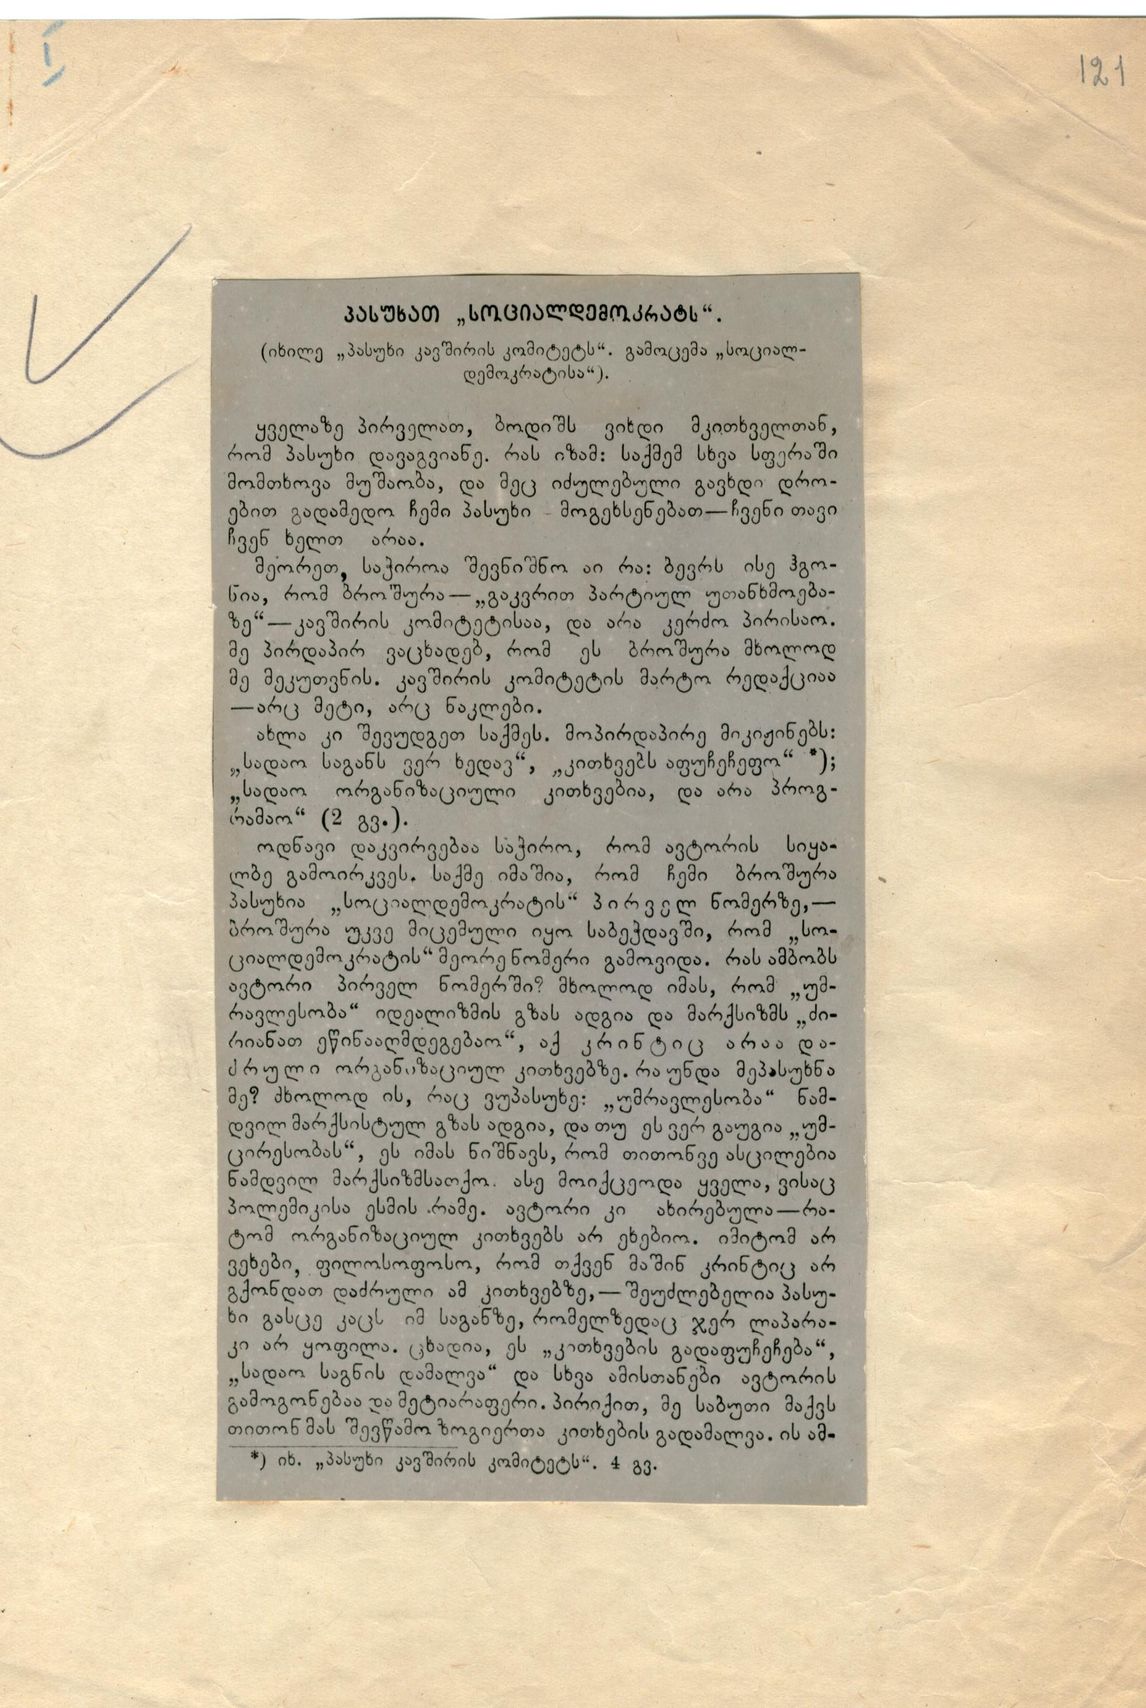 I
121
პასუხათ „სოციალდემოკრატს“.
(იხილე „პასუხი კავშირის კომიტეტს“. გამოცემა „სოციალ-
დემოკრატისა“).
ყველაზე პირველათ, ბოდიშს ვიხდი მკითხველთან,
რომ პასუხი დავაგვიანე. რას იზამ: საქმემ სხვა სფერაში
მომთხოვა მუშაობა, და მეც იძულებული გავხდი დრო-
ებით გადამედო ჩემი პასუხი - მოგეხსენებათ—ჩვენი თავი
ჩვენ ხელთ არაა.
მეორეთ, საჭიროა შევნიშნო აი რა: ბევრს ისე ჰგო-
ნია, რომ ბროშურა—„გაკვრით პარტიულ უთანხმოება-
ზე“—კავშირის კომიტეტისაა, და არა კერძო პირისაო.
მე პირდაპირ ვაცხადებ, რომ ეს ბროშურა მხოლოდ
მე მეკუთვნის. კავშირის კომიტეტის მარტო რედაქციაა
—არც მეტი, არც ნაკლები.
ახლა კი შევუდგეთ საქმეს. მოპირდაპირე მიკიჟინებს:
„სადაო საგანს ვერ ხედავ“, „კითხვებს აფუჩეჩეფო“ *);
„სადაო ორგანიზაციული კითხვებია, და არა პროგ-
რამაო“ (2 გვ.).
ოდნავი დაკვირვებაა საჭირო, რომ ავტორის სიყა-
ლბე გამოირკვეს. საქმე იმაშია, რომ ჩემი ბროშურა
პასუხია „სოციალდემოკრატის“ პირველ ნომერზე,—
ბროშურა უკვე მიცემული იყო საბეჭდავში, რომ „სო-
ციალდემოკრატის“ მეორე ნომერი გამოვიდა. რას ამბობს
ავტორი პირველ ნომერში? მხოლოდ იმას, რომ „უმ-
რავლესობა“ იდეალიზმის გზას ადგია და მარქსიზმს „ძი-
რიანათ ეწინააღმდეგებაო“, აქ კრინტიც არაა და-
ძრული ორგანიზაციულ კითხვებზე. რა უნდა მეპასუხნა
მე? მხოლოდ ის, რაც ვუპასუხე: „უმრავლესობა“ ნამ-
დვილ მარქსისტულ გზას ადგია, და თუ ეს ვერ გაუგია „უმ-
ცირესობას“, ეს იმას ნიშნავს, რომ თითონვე ასცილებია
ნამდვილ მარქსიზმსათქო. ასე მოიქცეოდა ყველა, ვისაც
პოლემიკისა ესმის რამე. ავტორი კი ახირებულა—რა-
ტომ ორგანიზაციულ კითხვებს არ ეხებიო. იმიტომ არ
ვეხები, ფილოსოფოსო, რომ თქვენ მაშინ კრინტიც არ
გქონდათ დაძრული ამ კითხვებზე,—შეუძლებელია პასუ-
ხი გასცე კაცს იმ საგანზე, რომელზედაც ჯერ ლაპარა-
კი არ ყოფილა. ცხადია, ეს „კითხვების გადაფუჩეჩება“,
„სადაო საგნის დამალვა“ და სხვა ამისთანები ავტორის
გამოგონებაა და მეტი არაფერი. პირიქით, მე საბუთი მაქვს
თითონ მას შევწამო ზოგიერთა კითხების გადამალვა. ის ამ-
*) იხ. „პასუხი კავშირის კომიტეტს“. 4 გვ.